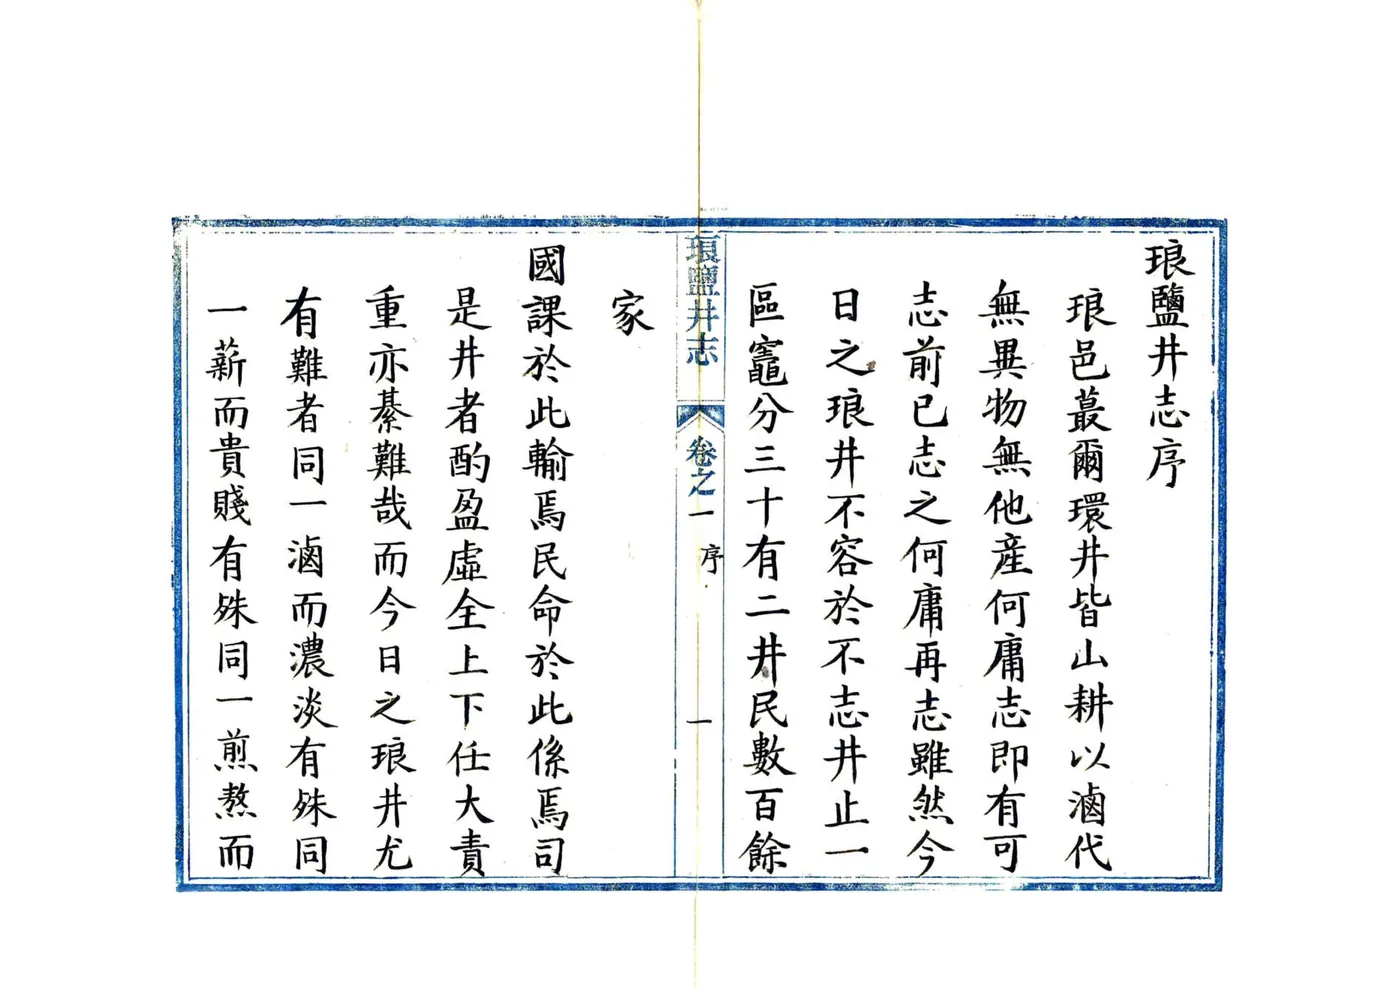 琅鹽井志序
琅邑蕞爾環井皆山耕以滷代
無異物無他產何庸志即有可
志前已志之何庸再志雖然今
日之琅井不容於不志井止一
區竈分三十有二井民數百餘
琅鹽井志 卷之一 序 一
家
國課於此輸焉民命於此係焉司
是井者酌盈虛全上下任大責
重亦綦難哉而今日之琅井尤
有難者同一滷而濃淡有殊同
一薪而貴賤有殊同一煎熬而